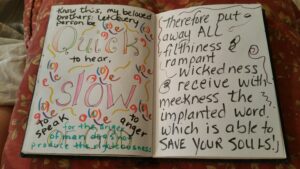 Know this, my beloved
brothers: let every
person be
Quick
to hear,
SLOW
to speak
to anger
for the anger
of man does not
produce the righteousness
Therefore put
away ALL
filthiness &
rampant
wickedness
& receive with
meekness the
implanted word,
which is able to
SAVE YOUR SOULS!